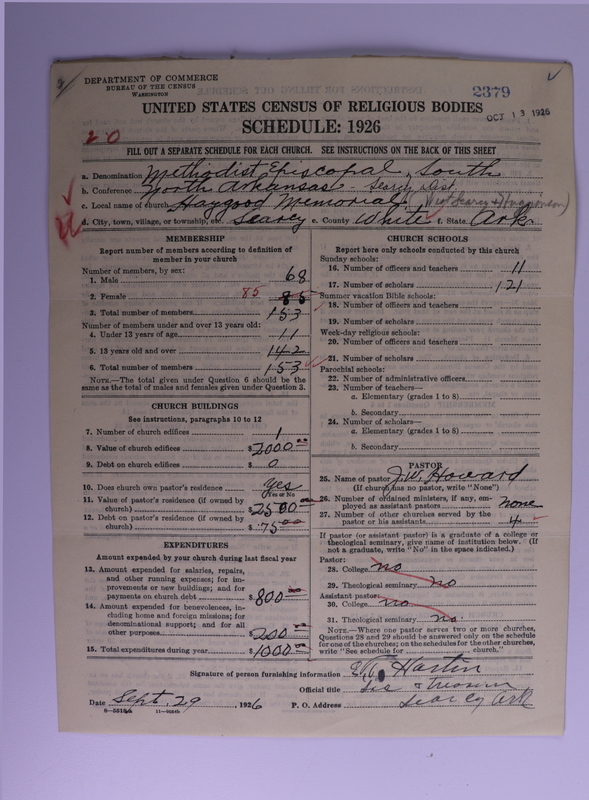 DEPARTMENT OF COMMERCE
BUREAU OF THE CENSUS
WASHINGTON
2379
OCT 13 1926
UNITED STATES CENSUS OF RELIGIOUS BODIES
SCHEDULE: 1926
20
FILL OUT A SEPARATE SCHEDULE FOR EACH CHURCH. SEE INSTRUCTIONS ON THE BACK OF THIS SHEET
a. Denomination Methodist Episcopal, South
b. Conference North Arkansas - Searcy Dist
c. Local name of church Haygood Memorial (West Searcy
d. City, town, village, or township, etc. Searcy e. County White f. State Ark
MEMBERSHIP
Report number of members according to definition of
member in your church
Number of members, by sex:
1. Male 68
2. Female 85 85
3. Total number of members 153
Number of members under and over 13 years old:
4. Under 13 years of age 11
5. 13 years old and over 142
6. Total number of members 153
NOTE.—The total given under Question 6 should be
same as the total of males and females given under Question 3.
CHURCH BUILDINGS
See instructions, paragraphs 10 to 12
7. Number of church edifices 1
8. Value of church edifices $2000.00
9. Debt on church edifices $ 0
10. Does church own pastor's residence Yes
(Yes or No
11. Value of pastor's residence (if owned by
church) $2500.00
12. Debt on pastor's residence (if owned by
church) $75.00
EXPENDITURES
Amount expended by your church during last fiscal year
13. Amount expended for salaries, repairs,
and other running expenses; for im-
provements or new buildings; and for
payments on church debt $800.00
14. Amount expended for benevolences, in-
cluding home and foreign missions; for
denominational support; and for all
other purposes $200.00
15. Total expenditures during year $1000.00
CHURCH SCHOOLS
Report here only schools conducted by this church
Sunday schools:
16. Number of officers and teachers 11
17. Number of scholars 121
Summer vacation Bible schools:
18. Number of officers and teachers
19. Number of scholars
Week-day religious schools:
20. Number of officers and teachers
21. Number of scholars
Parochial schools:
22. Number of administrative officers
23. Number of teachers—
a. Elementary (grades 1 to 8)
b. Secondary
24. Number of scholars—
a. Elementary (grades 1 to 8)
b. Secondary
PASTOR
25. Name of pastor J. W. Howard
(If church has no pastor, write "None")
26. Number of ordained ministers, if any, em-
ployed as assistant pastors none
27. Number of other churches served by the
pastor or his assistants 4
If pastor (or assistant pastor) is a graduate of a college or
theological seminary, give name of institution below. (If
not a graduate, write "No" in the space indicated.)
Pastor:
28. College no
29. Theological seminary no
Assistant pastor:
30. College no
31. Theological seminary no
NOTE.—Where one pastor serves two or more churches,
Questions 28 and 29 should be answered only on the schedule
for one of the churches; on the schedules for the other churches,
write "See schedule for church."
Signature of person furnishing information Hartin
Official title
Date Sept. 29, 1926 P. O. Address Searcy Ark